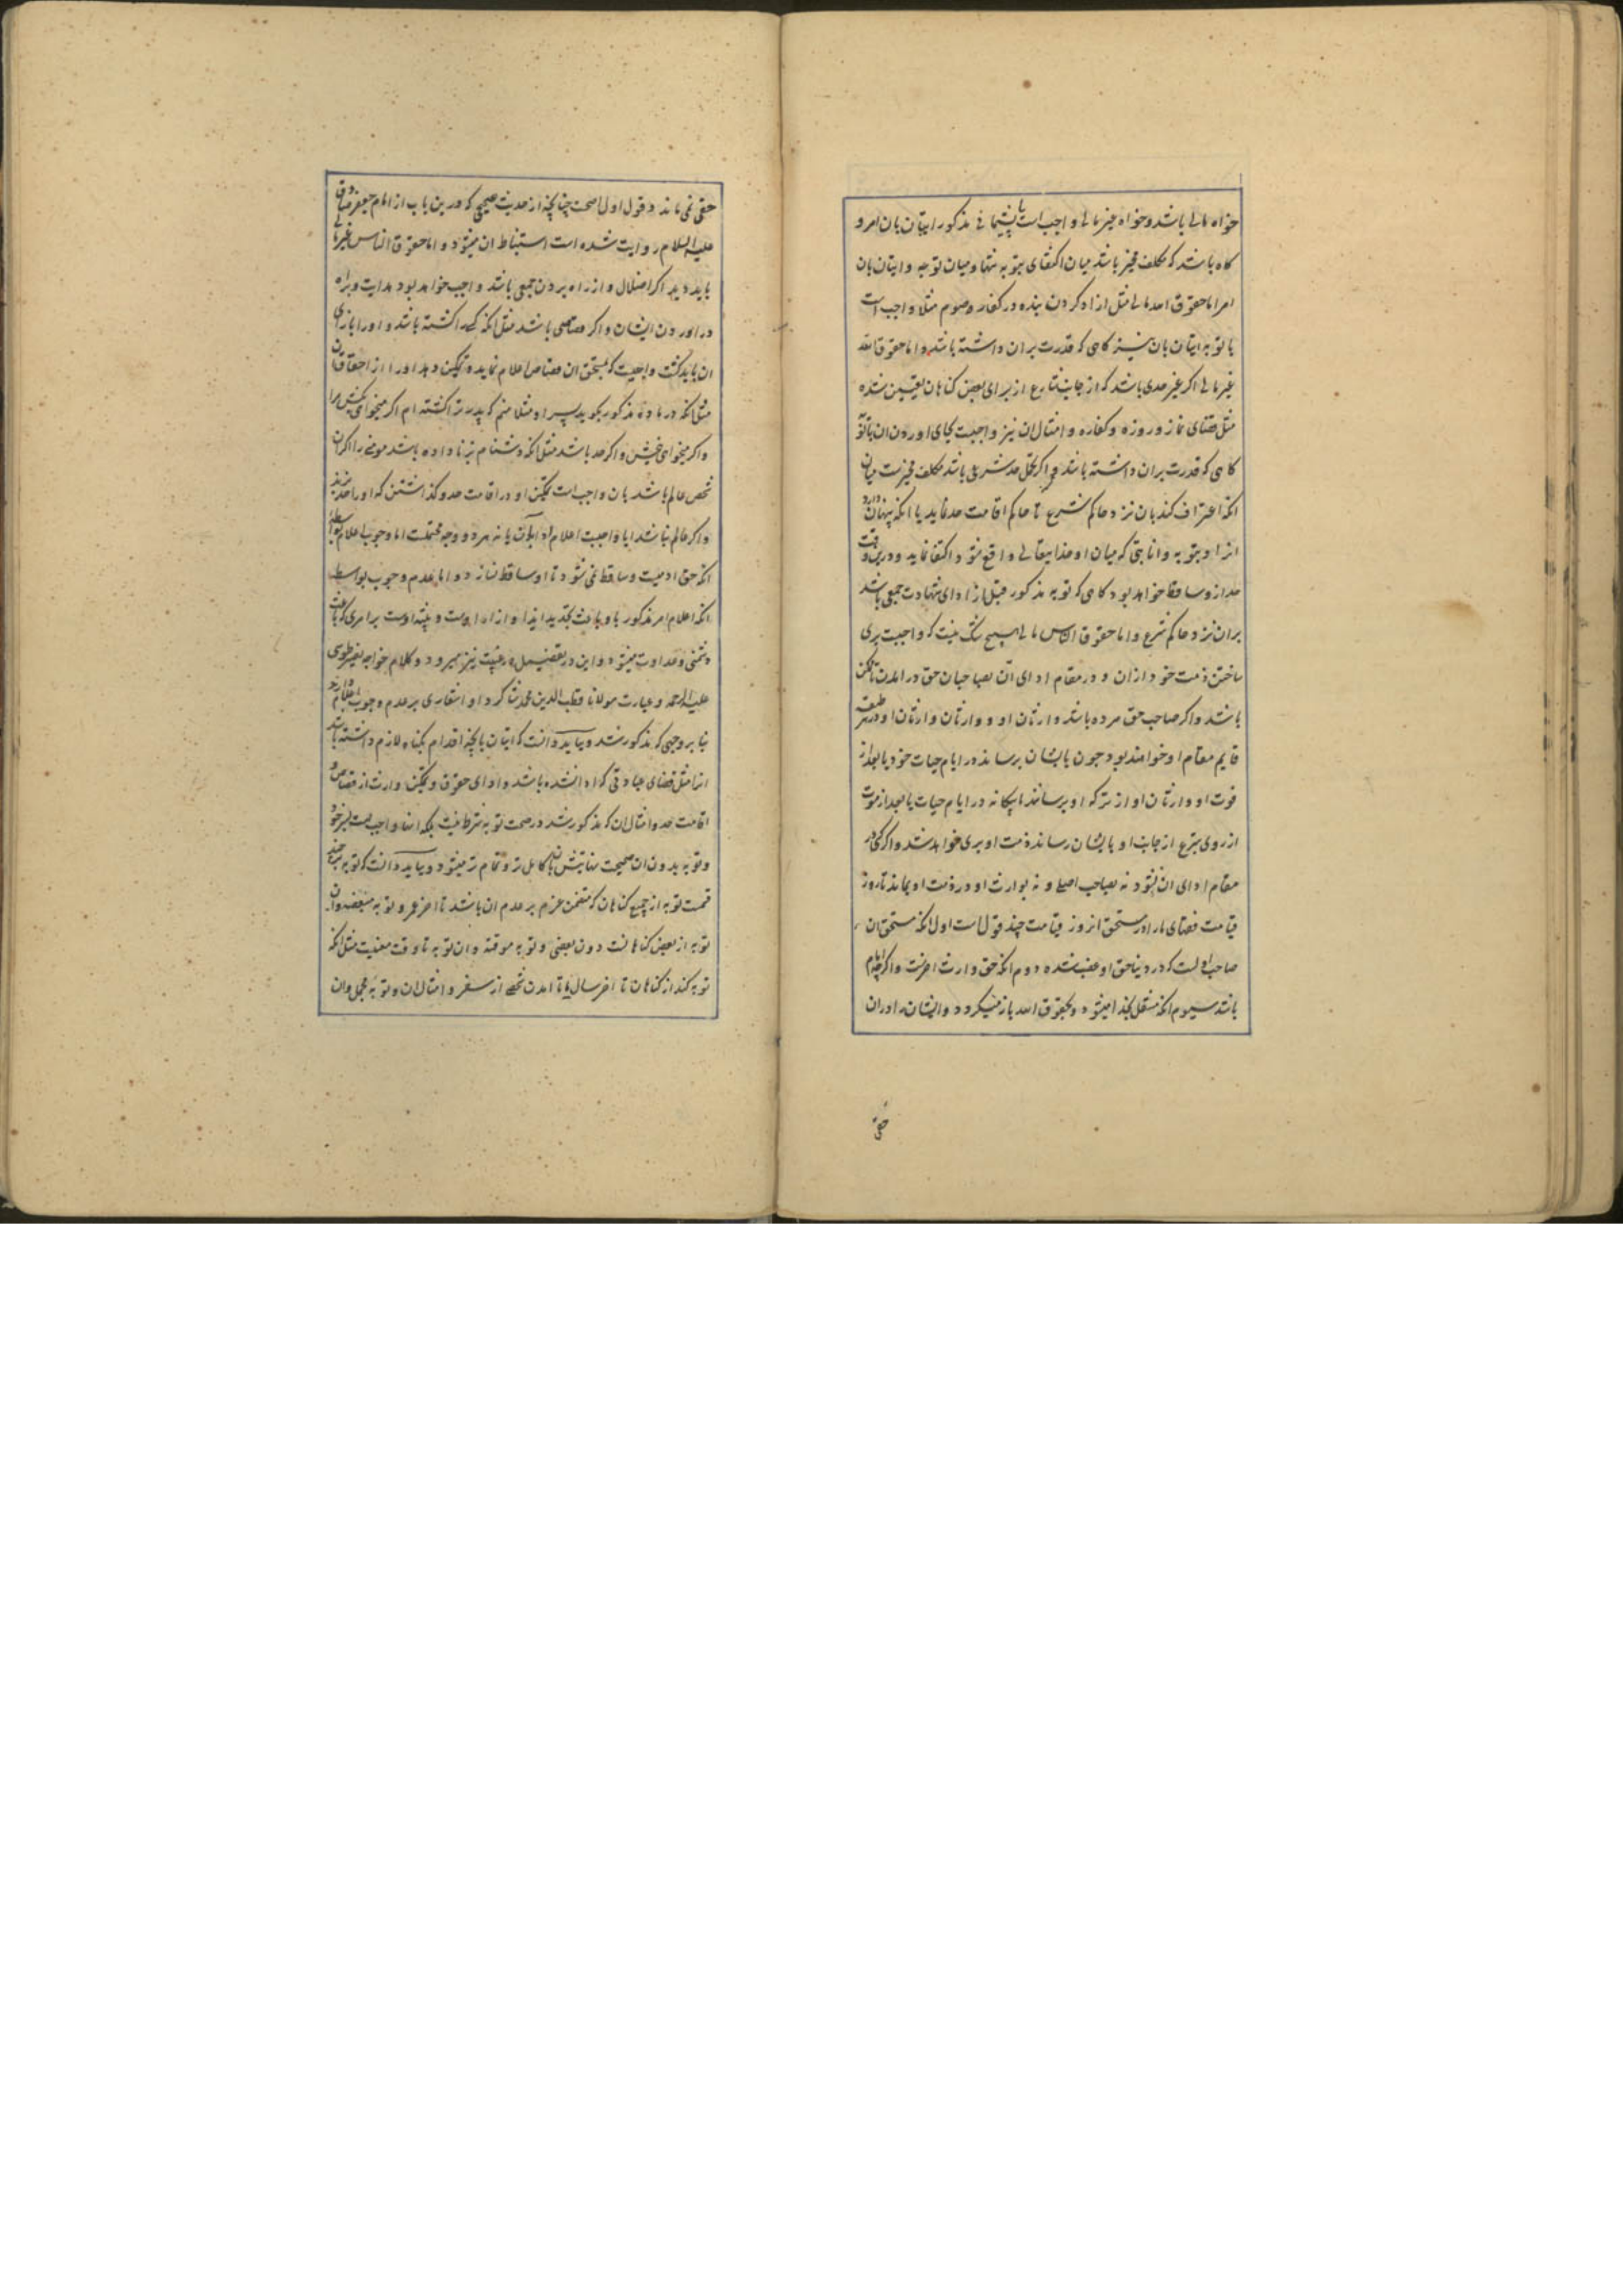 خواه مالی باشد و خواه غیر مالی واجب است با پشیمانی مذکور ایتان بان امر و
کاه باشد که مکلف مخیر باشد میان اکتفای بتوبه تنها و میان توبه و ایتان بان
امر اما حقوق الله مالی مثل ازاد کردن بنده در کفاره صوم مثلا واجب است
با توبه ایتان بان نیز کاهی که قدرت بران داشته باشد و اما حقوق الله
غیر مالی اکر غیر حدی باشد که از جانب شارع از برای بعض کناهان تعیین شده
مثل قضای نماز و روزه و کفاره و امثال ان نیز واجبست بجای اوردن ان با توبه
کاهی که قدرت بران داشته باشد و اکر محل حد شرعی باشد مکلف مخیرست میان
انکه اعتراف کند بان نزد حاکم شرع تا حاکم اقامت حد نماید یا انکه پنهان دارد
انرا و بتوبه و انابتی که میان او و خدایتعالی واقع شود اکتفا نماید و درین وقت
حد ازو ساقط خواهد بود کاهی که توبه مذکور قبل از ادای شهادت جمعی باشد
بران نزد حاکم شرع و اما حقوق الناس مالی هیچ شک نیست که واجبست بری
ساختن ذمت خود ازان و در مقام ادای آن بصاحبان حق در امدن تا ممکن
باشد و اکر صاحب حق مرده باشد وارثان او و وارثان وارثان او در هر طبقه
قایم مقام او خواهند بود چون بایشان برساند در ایام حیات خود یا بعد از
فوت او وارثان او از ترکه او برسانند یا بیکانه در ایام حیات یا بعد از موت
از روی تبرع از جانب او بایشان رساند ذمت او بری خواهد شد و اکر کسی در
مقام ادای ان نشود نه بصاحب اصلی و نه بوارث او و در ذمت او بماند تا روز
قیامت فقهای ما را در مستحق ان روز قیامت چند قول است اول انکه مستحق ان
صاحب اولست که در دنیا حق او غصب شده دوم انکه حق وارث اخرست و اکر چه امام
باشد سیوم انکه منتقل بخدا میشود و بحقوق الله باز میکردد و ایشان را دران
حقی
حقی نمی ماند و قول اول اصحست چنانچه از حدیث صحیحی که درین باب از امام جعفر صادق
علیه السلام روایت شده است استنباط ان میشود و اما حقوق الناس غیر مالی
باید دید اکر اضلال و از راه بردن جمعی باشد واجب خواهد بود هدایت و براه
در اوردن ایشان و اکر قصاصی باشد مثل انکه کسی را کشته باشد و او را بازای
ان باید کشت واجبست که مستحق ان قصاص اعلام نماید و تمکین دهد او را از احقاق ان
مثل انکه در ماده مذکور بکوید پسر او مثلا منم که پدر ترا کشته ام اکر میخواهی بکش مرا
و اکر میخواهی ببخش و اکر حد باشد مثل انکه دشنام بزنا داده باشد مومنی را اکر ان
شخص عالم باشد بان واجب است تمکین او در اقامت حد و کذاشتن که او را حد بزند
و اکر عالم نباشد ایا واجبست اعلام او بان یا نه هر دو وجه محتملست اما وجوب اعلام بواسطه
انکه حق ادمیست و ساقط نمی شود تا او ساقط نسازد و اما عدم وجوب بواسطه
انکه اعلام امر مذکور باو باعث تجدید ایذا و ازار اوست و تنبیه اوست بر امری که باعث
دشمنی و عداوت میشود و این در تفضیل در غیبت نیز میرود و کلام خواجه نصیر طوسی
علیه الرحمه و عبارت مولانا قطب الدین محمد شاکرد او اشعاری بر عدم وجوب اعلام دارد
بنا بر وجهی که مذکور شد و بباید دانست که ایتان بانچه اقدام بکناه لازم داشته باشد
انرا مثل قضای عبادتی که ادا نشده باشد و ادای حقوق و تمکین وارث از قصاص و
اقامت حد و امثال ان که مذکور شد در صحت توبه شرط نیست بلکه انها واجبست بسر خود
و توبه بدون ان صحیحست نهایتش بان کامل تر و تمام تر میشود و بباید دانست که توبه بر چند
قسمست توبه از جمیع کناهان که متضمن عزم بر عدم ان باشد تا اخر عمر و توبه مبعضه و ان
توبه از بعض کناهانست دون بعضی و توبه موقته و ان توبه تا وقت معینست مثل انکه
توبه کند از کناهان تا اخر سال یا تا امدن شخصی از سفر و امثال ان و توبه مجمل و ان